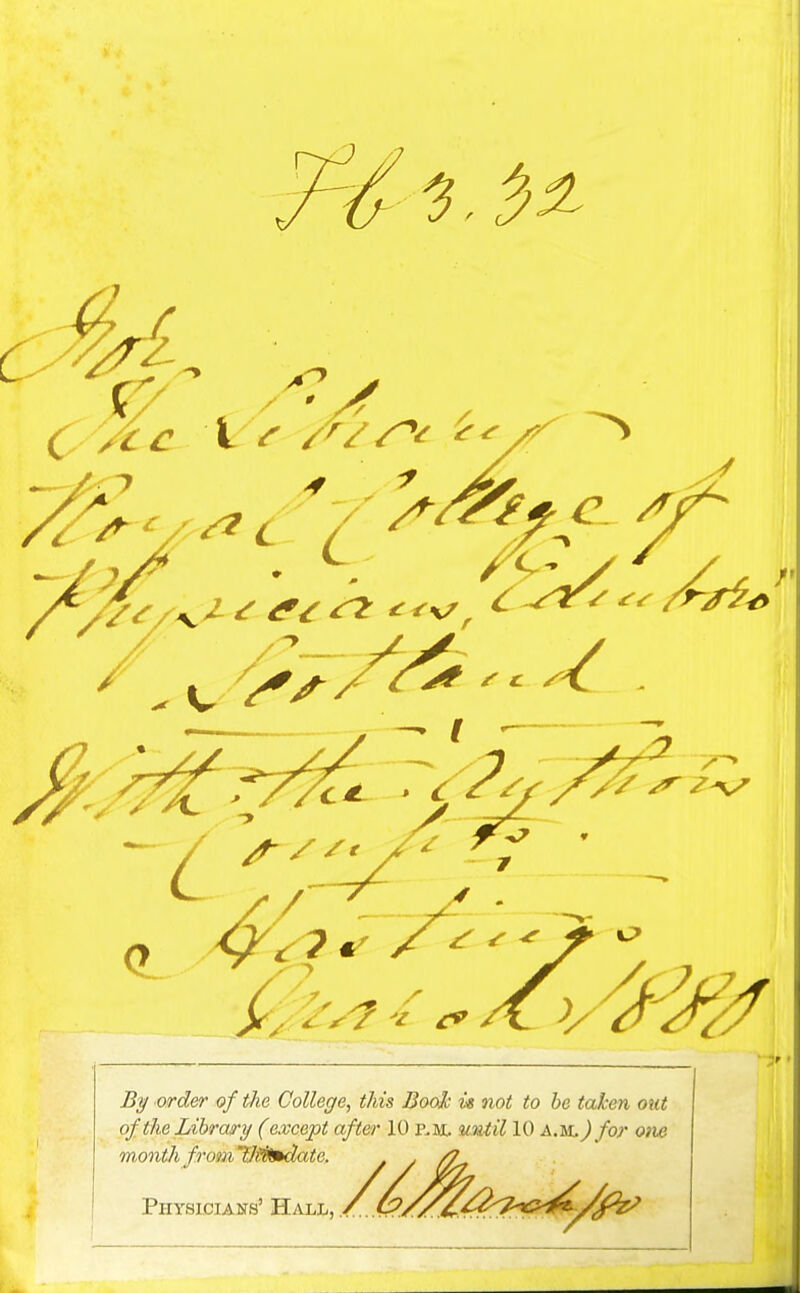 Fb 3.32
For
The Library
Royal College of
Physicians, Edinboro'
Scotland.
With the Author's
Compts.
Hastings
March/1880
By order of the College, this Book is not to be taken out
of the Library (except after 10 P.M. until 10 A.M.) for one
month from this date.
PHYSICIANS' HALL, 16 March/80